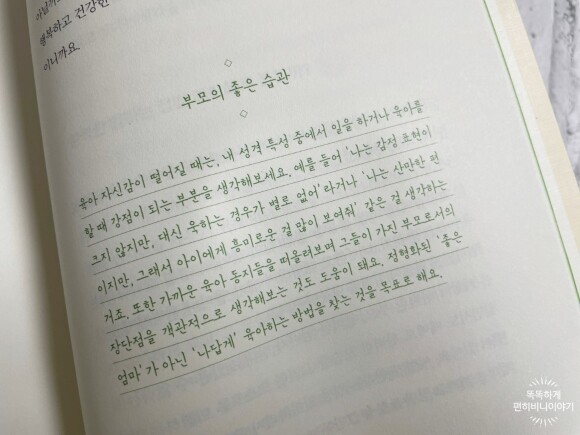 행복하고 건강한
이니까요.
부모의 좋은 습관
육아 자신감이 떨어질 때는, 내 성격 특성 중에서 일을 하거나 육아를
할 때 강점이 되는 부분을 생각해보세요. 예를 들어 '나는 감정 표현이
크지 않지만, 대신 욱하는 경우가 별로 없어' 라거나 '나는 산만한 편
이지만, 그래서 아이에게 흥미로운 걸 많이 보여줘' 같은 걸 생각하는
거죠. 또한 가까운 육아 동지들을 떠올려보며 그들이 가진 부모로서의
장단점을 객관적으로 생각해보는 것도 도움이 돼요. 정형화된 '좋은
엄마'가 아닌 '나답게' 육아하는 방법을 찾는 것을 목표로 해요.
똑똑하게
편히비니이야기